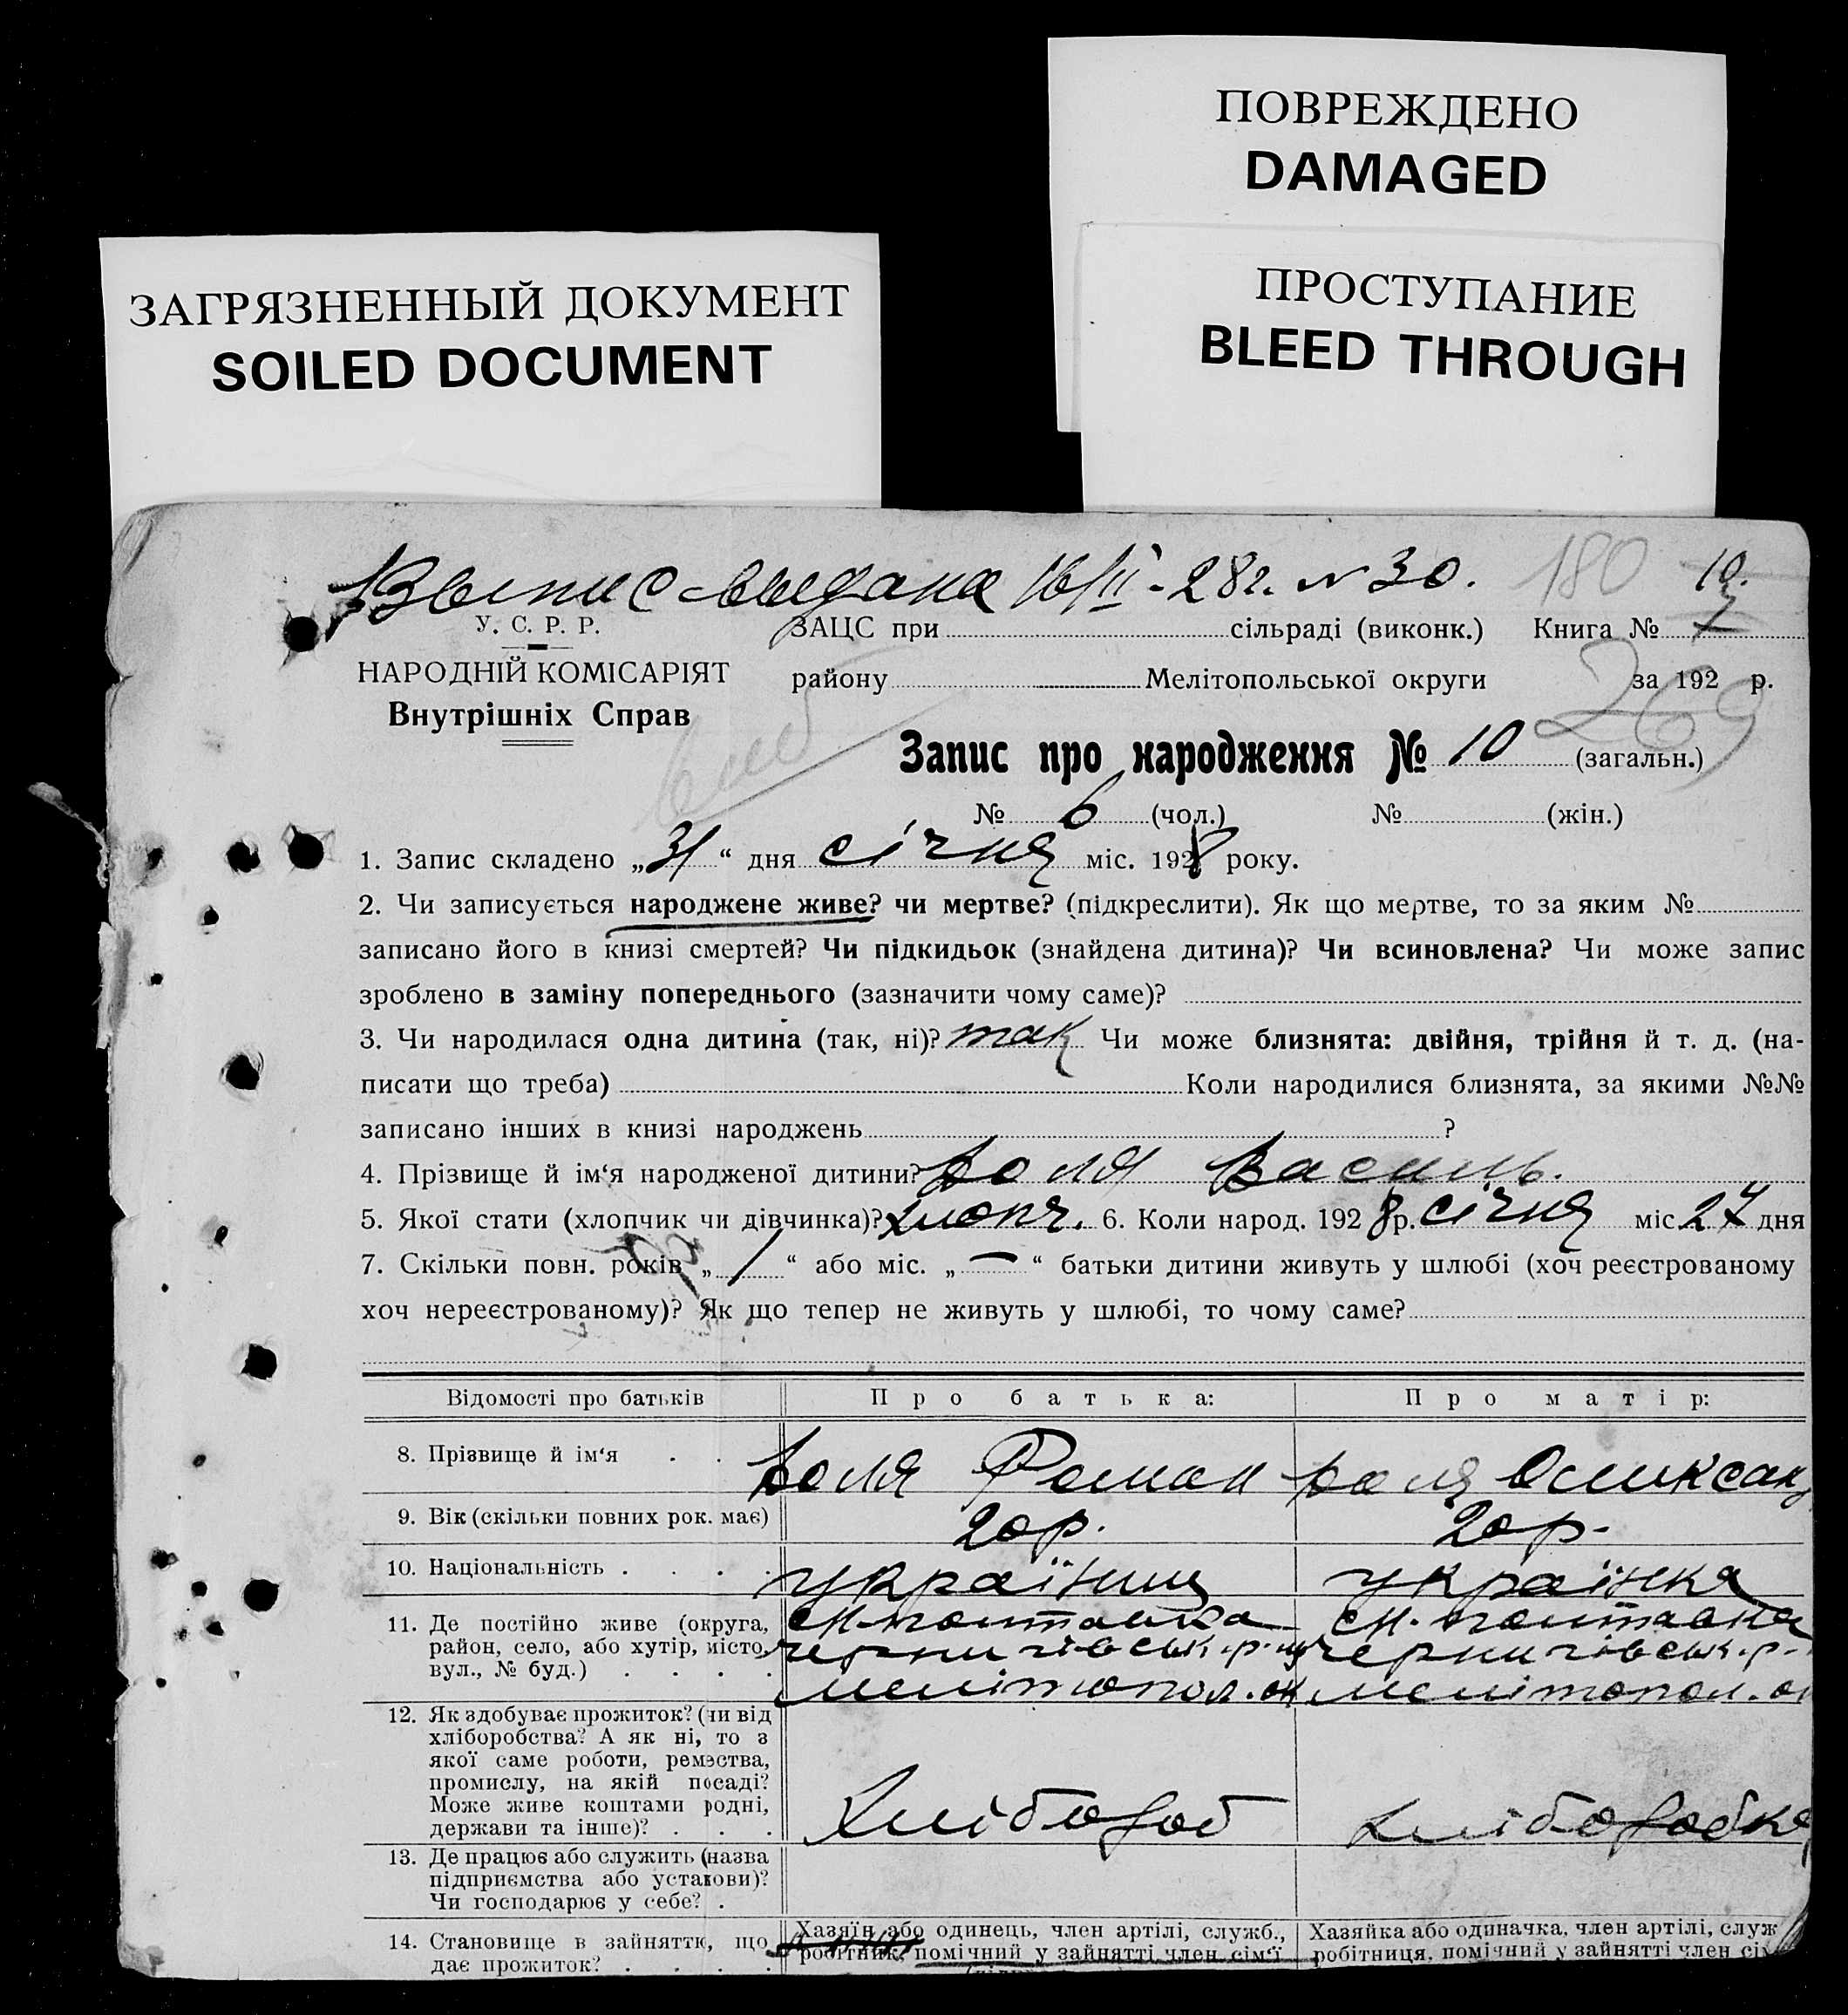 ПОВРЕЖДЕНО
DAMAGED
ЗАГРЯЗНЕННЫЙ ДОКУМЕНТ
SOILED DOCUMENT
ПРОСТУПАНИЕ
BLEED THROUGH
Выпис выдана 16/II-28г. N 30. 180 10.
У. С. Р. Р.
НАРОДНІЙ КОМІСАРІЯТ
Внутрішніх Справ
ЗАЦС при сільраді (виконк.) Книга № 7
району Мелітопольської округи за 192 р.
269
Запис про народження № 10 (загальн.)
№ 6 (чол.) № (жін.)
1. Запис складено „31“ дня січня міс. 1928 року.
2. Чи записується народжене живе? чи мертве? (підкреслити). Як що мертве, то за яким №
записано його в книзі смертей? Чи підкидьок (знайдена дитина)? Чи всиновлена? Чи може запис
зроблено в заміну попереднього (зазначити чому саме)?
3. Чи народилася одна дитина (так, ні)? так Чи може близнята: двійня, трійня й т. д. (на-
писати що треба) Коли народилися близнята, за якими №№
записано інших в книзі народжень ?
4. Прізвище й ім‘я народженої дитини? Доля Василь.
5. Якої стати (хлопчик чи дівчинка)? хлопч. 6. Коли народ. 1928 р. січня міс 27 дня
7. Скільки повн. років „1“ або міс. „—“ батьки дитини живуть у шлюбі (хоч реєстрованому
хоч нереєстрованому)? Як що тепер не живуть у шлюбі, то чому саме?
Відомості про батьків Про батька: Про матір:
8. Прізвище й ім‘я . . Доля Роман Доля Оликсан
9. Вік (скільки повних рок. має) 20 р. 20 р.
10. Національність . . . . українец українка
11. Де постійно живе (округа,
район, село, або хутір, місто,
вул., № буд.) . . . .
см. полтавка
чернигівськ. р-ну
мелітопол. ок
см. полтавка
чернигівськ. р-
мелітопол. ок
12. Як здобуває прожиток? (чи від
хліборобства? А як ні, то з
якої саме роботи, ремества,
промислу, на якій посаді?
Може живе коштами родні,
держави та інше)? . . .
Хлібороб хліборобка
13. Де працює або служить (назва
підприємства або установи)?
Чи господарює у себе? .
14. Становище в зайняттю, що
дає прожиток? . . . .
Хазяїн або одинець, член артілі, служб.,
робітник, помічний у зайнятті член сім‘ї
Хазяйка або одиначка, член артілі, служ
робітниця, помічний у зайнятті член сі